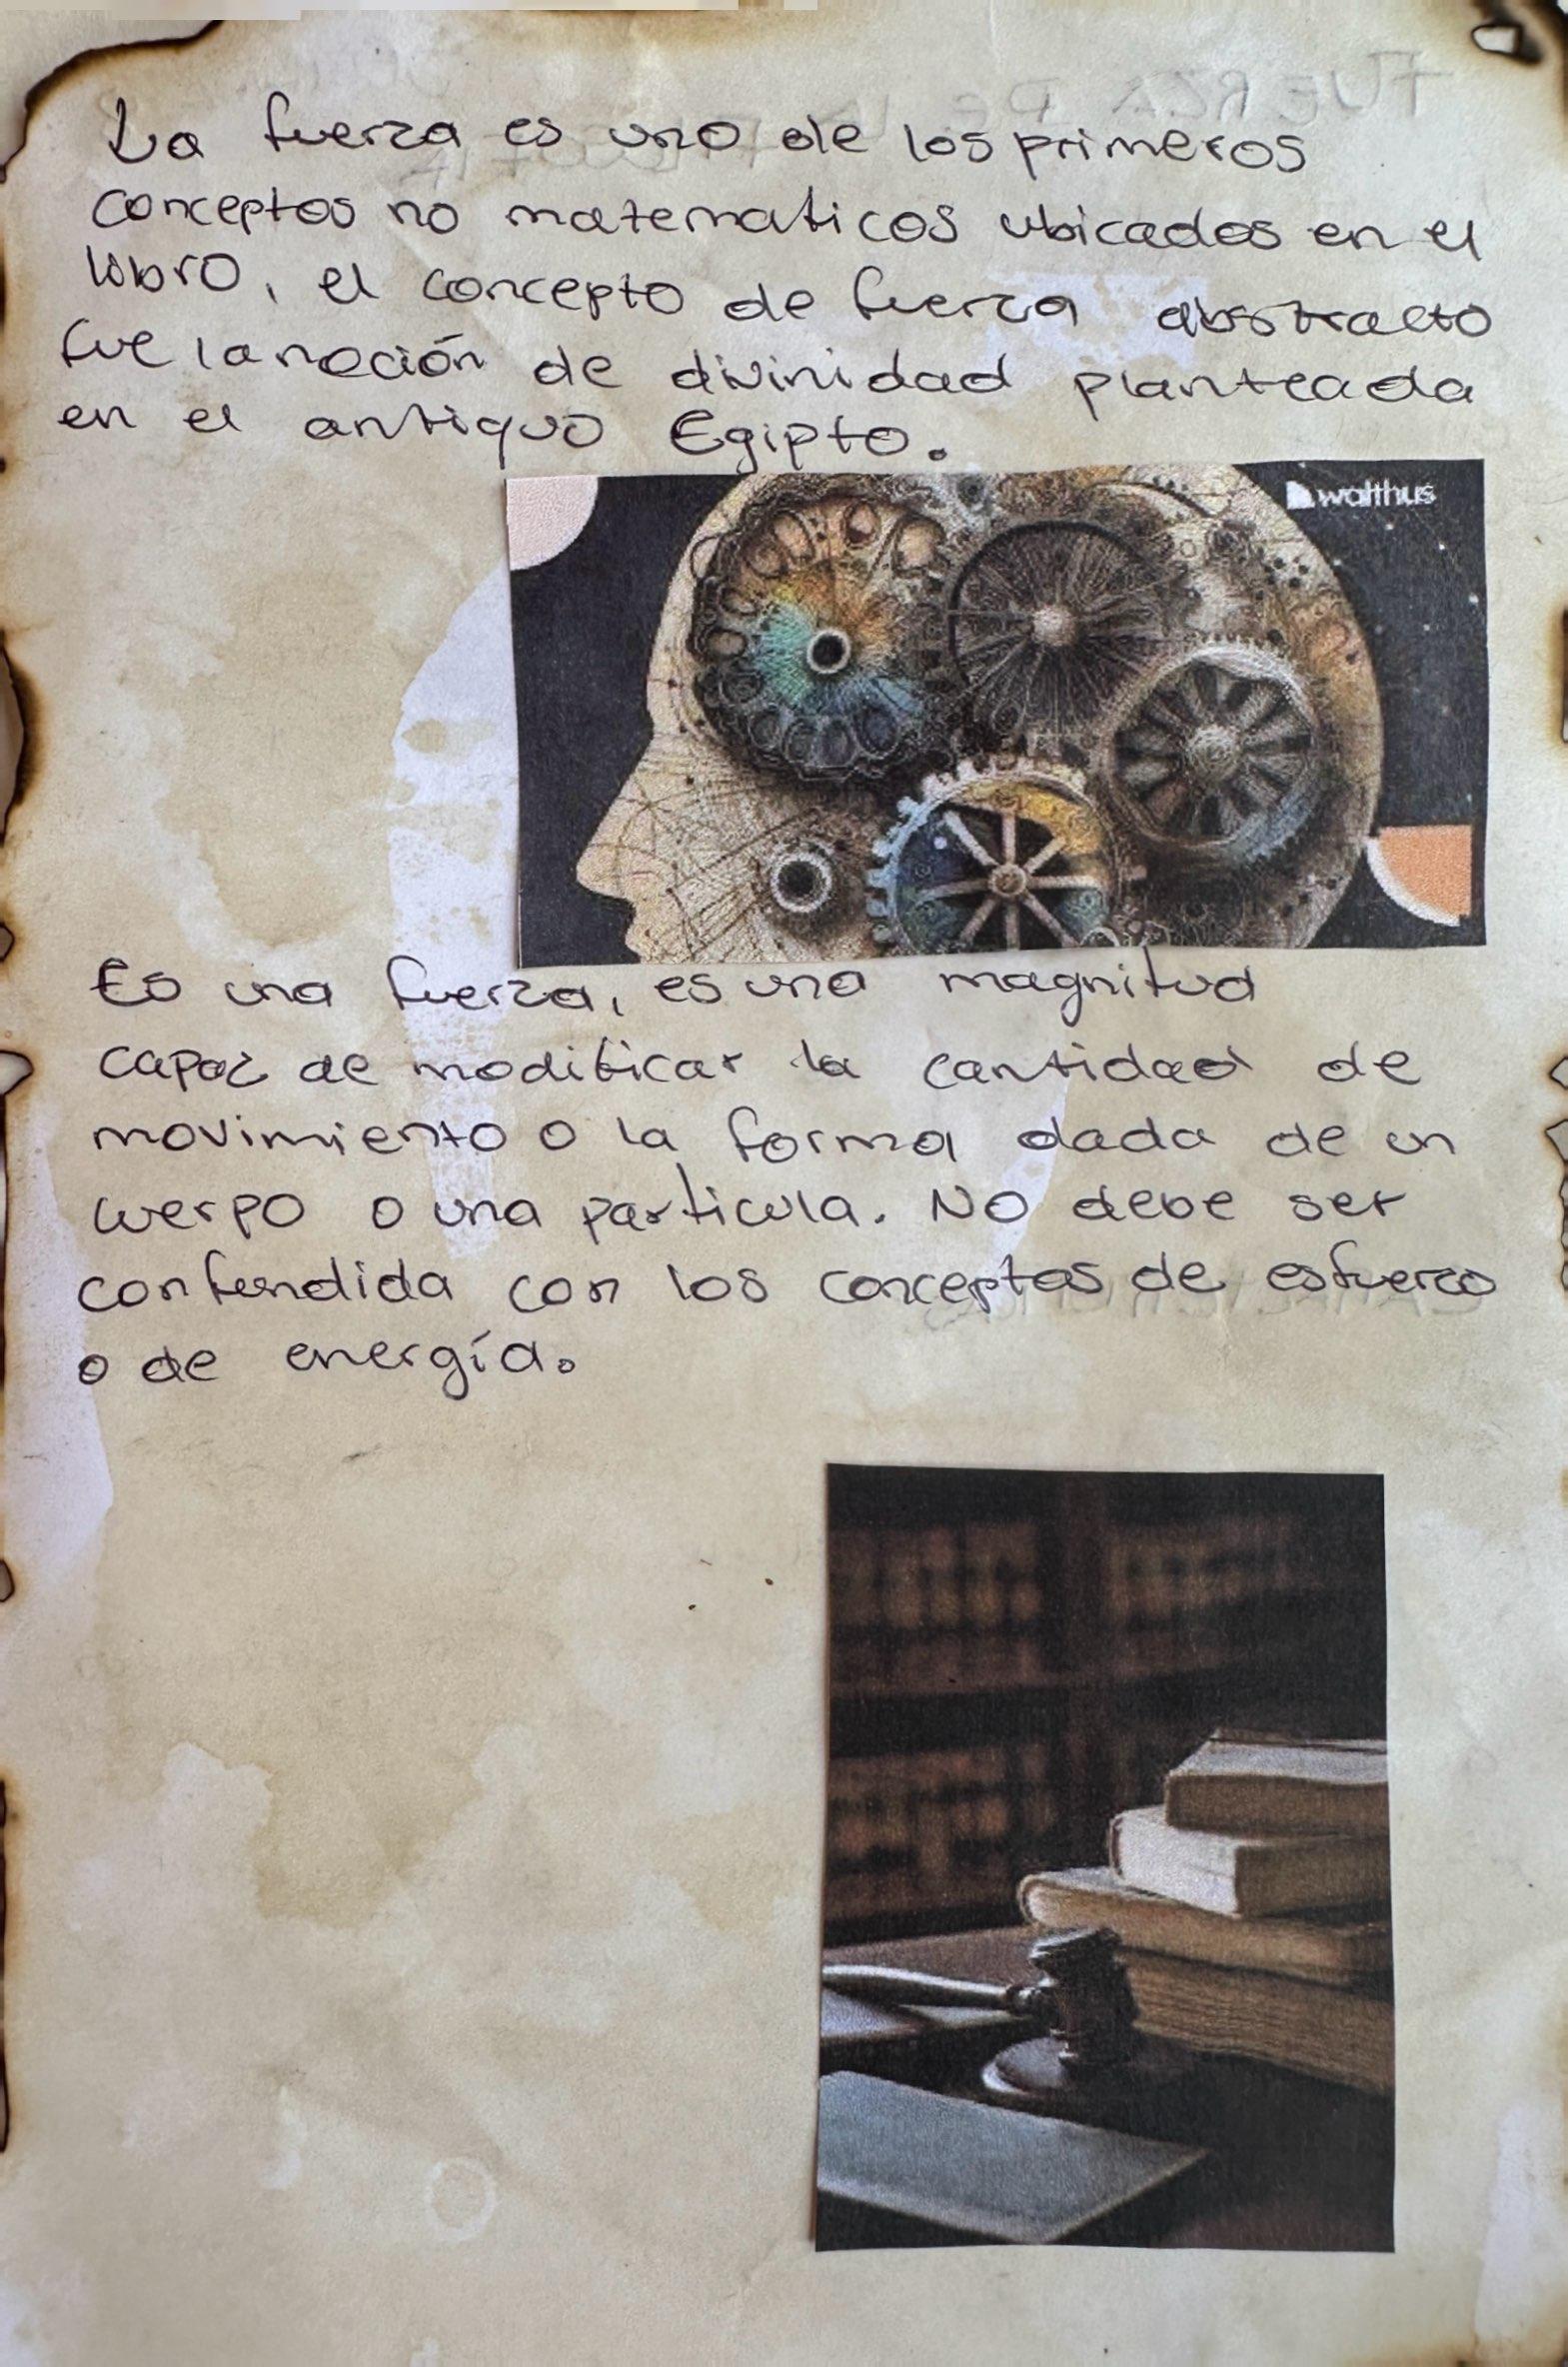 La fuerza es uno de los primeros
conceptos no matematicos ubicados en el
libro, el concepto de fuerza abstracto
fue la noción de divinidad planteada
en el antiguo Egipto.
walthus
Es una fuerza, es una magnitud
capaz de modificar la cantidad de
movimiento o la forma dada de un
cuerpo o una particula. No debe ser
confundida con los conceptos de esfuerzo
o de energía.